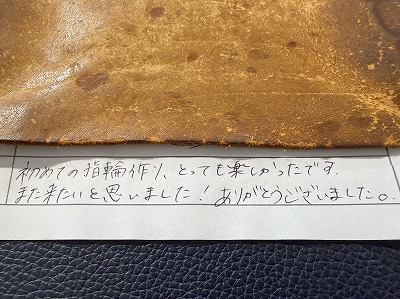 初めての指輪作り、とっても楽しかったです.
また来たいと思いました！ありがとうございました。